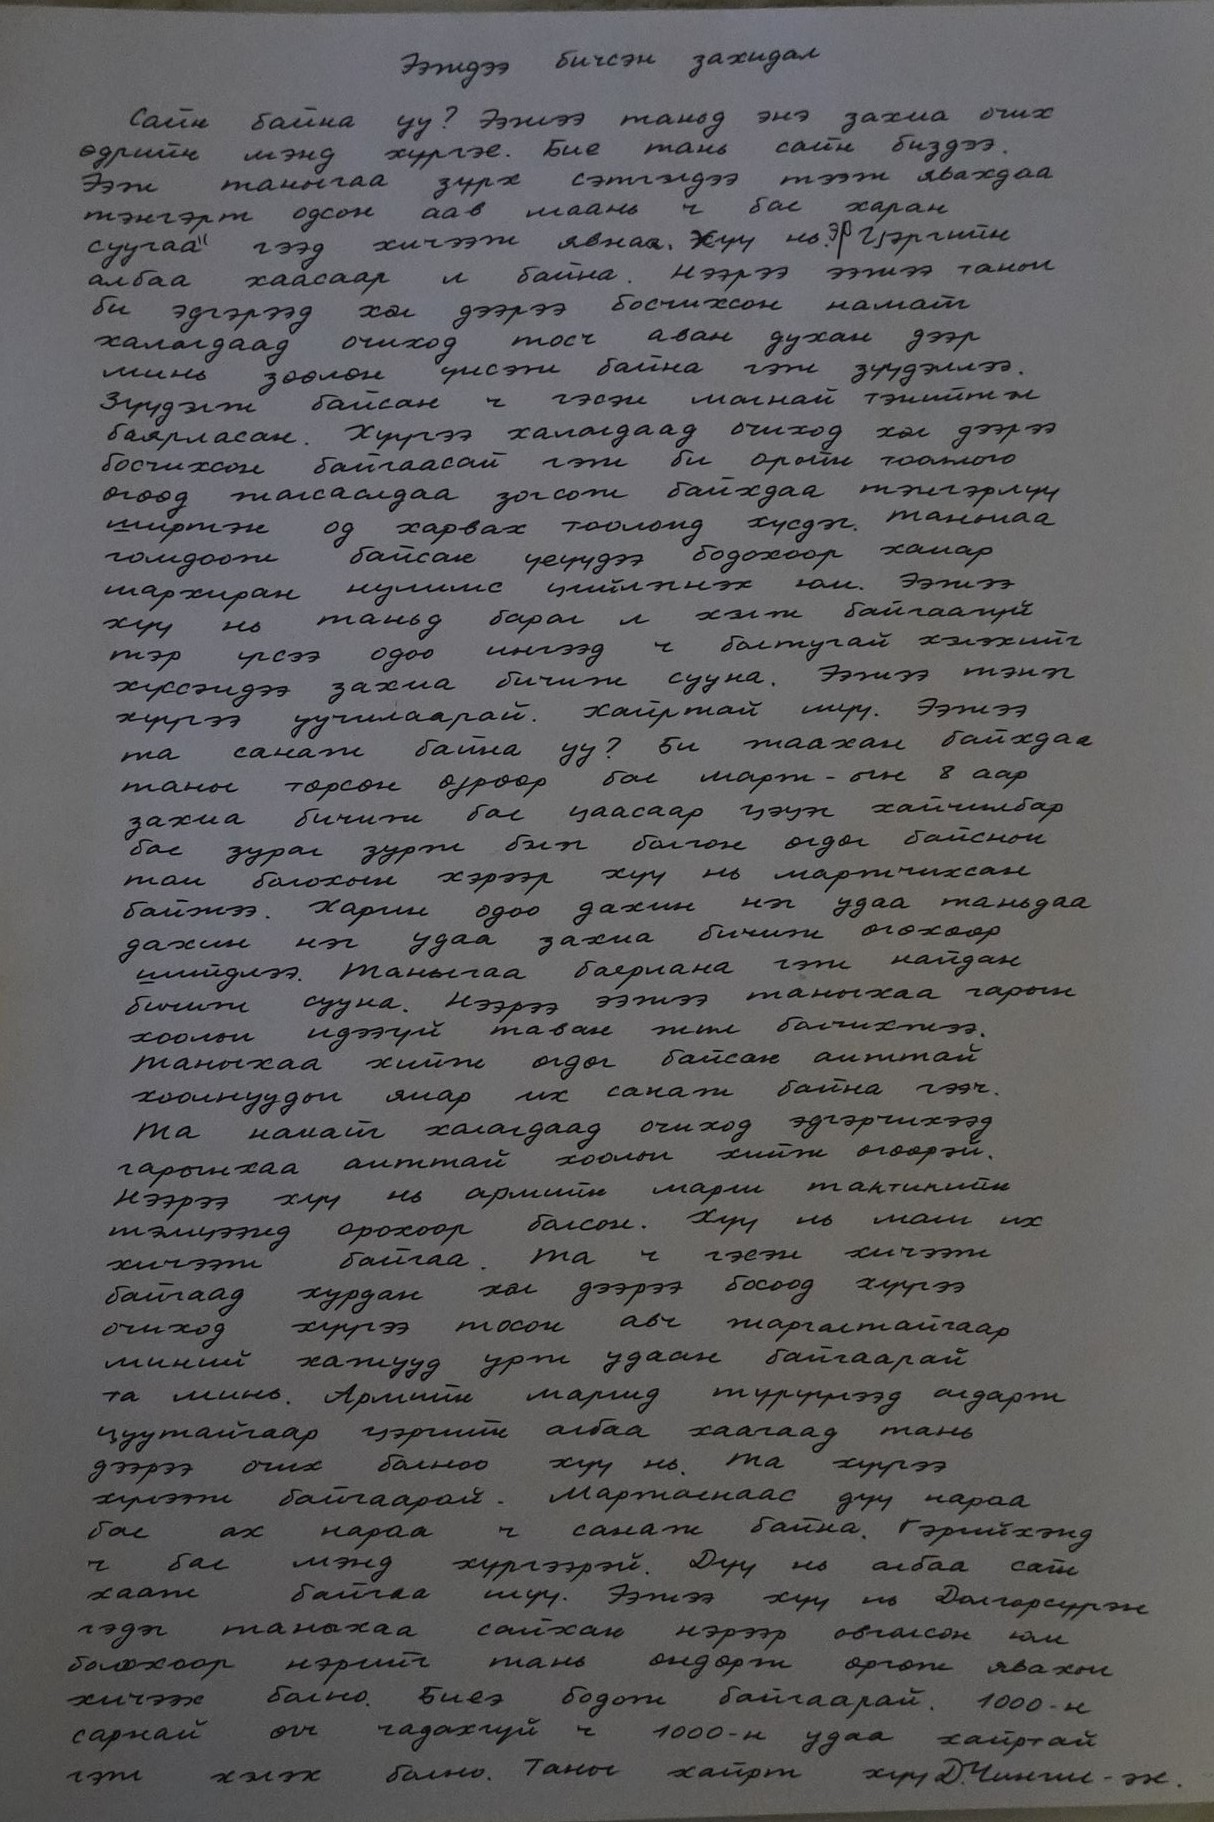 Ээждээ бичсэн захидал
Сайн байна уу? Ээжээ таньд энэ захиа очих
өдрийн мэнд хүргэе. Бие тань сайн биздээ.
Ээж таныгаа зүрх сэтгэлдээ тээж явахдаа
тэнгэрт одсон аав маань ч бас харан
суугаа" гээд хичээж явнаа. Хүү нь эр цэргийн
албаа хаасаар л байна. Нээрээ ээжээ таныг
би эдгэрээд хөл дээрээ босчихсон намайг
халагдаад очиход тосч аван духан дээр
минь зөөлөн үнсэж байна гэж зүүдэллээ.
Зүүдэлж байсан ч гэсэн магнай тэнийтэл
баярласан. Хүүгээ халагдаад очиход хөл дээрээ
босчихсон байгаасай гэж би оройн тооллого
өгөөд жагсаалдаа зогсож байхдаа тэнгэрлүү
ширтэж од харвах тоолонд хүсдэг. Таныгаа
гомдоож байсан үеүүдээ бодохоор хамар
шархиран нулимс цийлэгнэх юм. Ээжээ
хүү нь таньд бараг л хэлж байгаагүй
тэр үгсээ одоо ингээд ч болтугай хэлэхийг
хүссэндээ захиа бичиж сууна. Ээжээ тэнэг
хүүгээ уучилаарай. Хайртай шүү. Ээжээ
та санаж байна уу? Би жаахан байхдаа
таны төрсөн өдрөөр бас март-ын 8 аар
захиа бичиж бас цаасаар цэцэг хайчилбар
бас зураг зурж бэлэг болгон өгдөг байсныг
том болохын хэрээр хүү нь мартчихсан
байжээ. Харин одоо дахин нэг удаа таньдаа
дахин нэг удаа захиа бичиж өгөхөөр
шийдлээ. Таныгаа баярлана гэж найдан
бичиж сууна. Нээрээ ээжээ таныхаа гарын
хоолыг идээгүй таван жил болчихжээ.
Таныхаа хийж өгдөг байсан амттай
хоолнуудыг ямар их санаж байна гээч.
Та намайг халагдаад очиход эдгэрчихээд
гарынхаа амттай хоолыг хийж өгөөрэй.
Нээрээ хүү нь армийн марш тактикийн
тэмцээнд орохоор болсон. Хүү нь маш их
хичээж байгаа. Та ч гэсэн хичээж
байгаад хурдан хөл дээрээ босоод хүүгээ
очиход хүүгээ тосон авч жаргалтайгаар
миний хажууд урт удаан байгаарай
та минь. Армийн маршид түрүүлээд алдарт
цуутайгаар цэргийн албаа хаагаад тань
дээрээ очих болноо хүү нь. Та хүүгээ
хүлээж байгаарай. Мартагнаас дүү нараа
бас ах нараа ч санаж байна. Гэрийхэнд
ч бас мэнд хүргээрэй. Дүү нь албаа сайн
хааж байгаа шүү. Ээжээ хүү нь Долгорсүрэн
гэдэг таныхаа сайхан нэрээр овгилсон юм
болохоор нэрийг тань өндөрт өргөж явахыг
хичээх болно. Биеэ бодож байгаарай. 1000-н
сарнай өгч чадахгүй ч 1000-н удаа хайртай
гэж хэлэх болно. Таны хайрт хүү Д.Чингис-ээс.